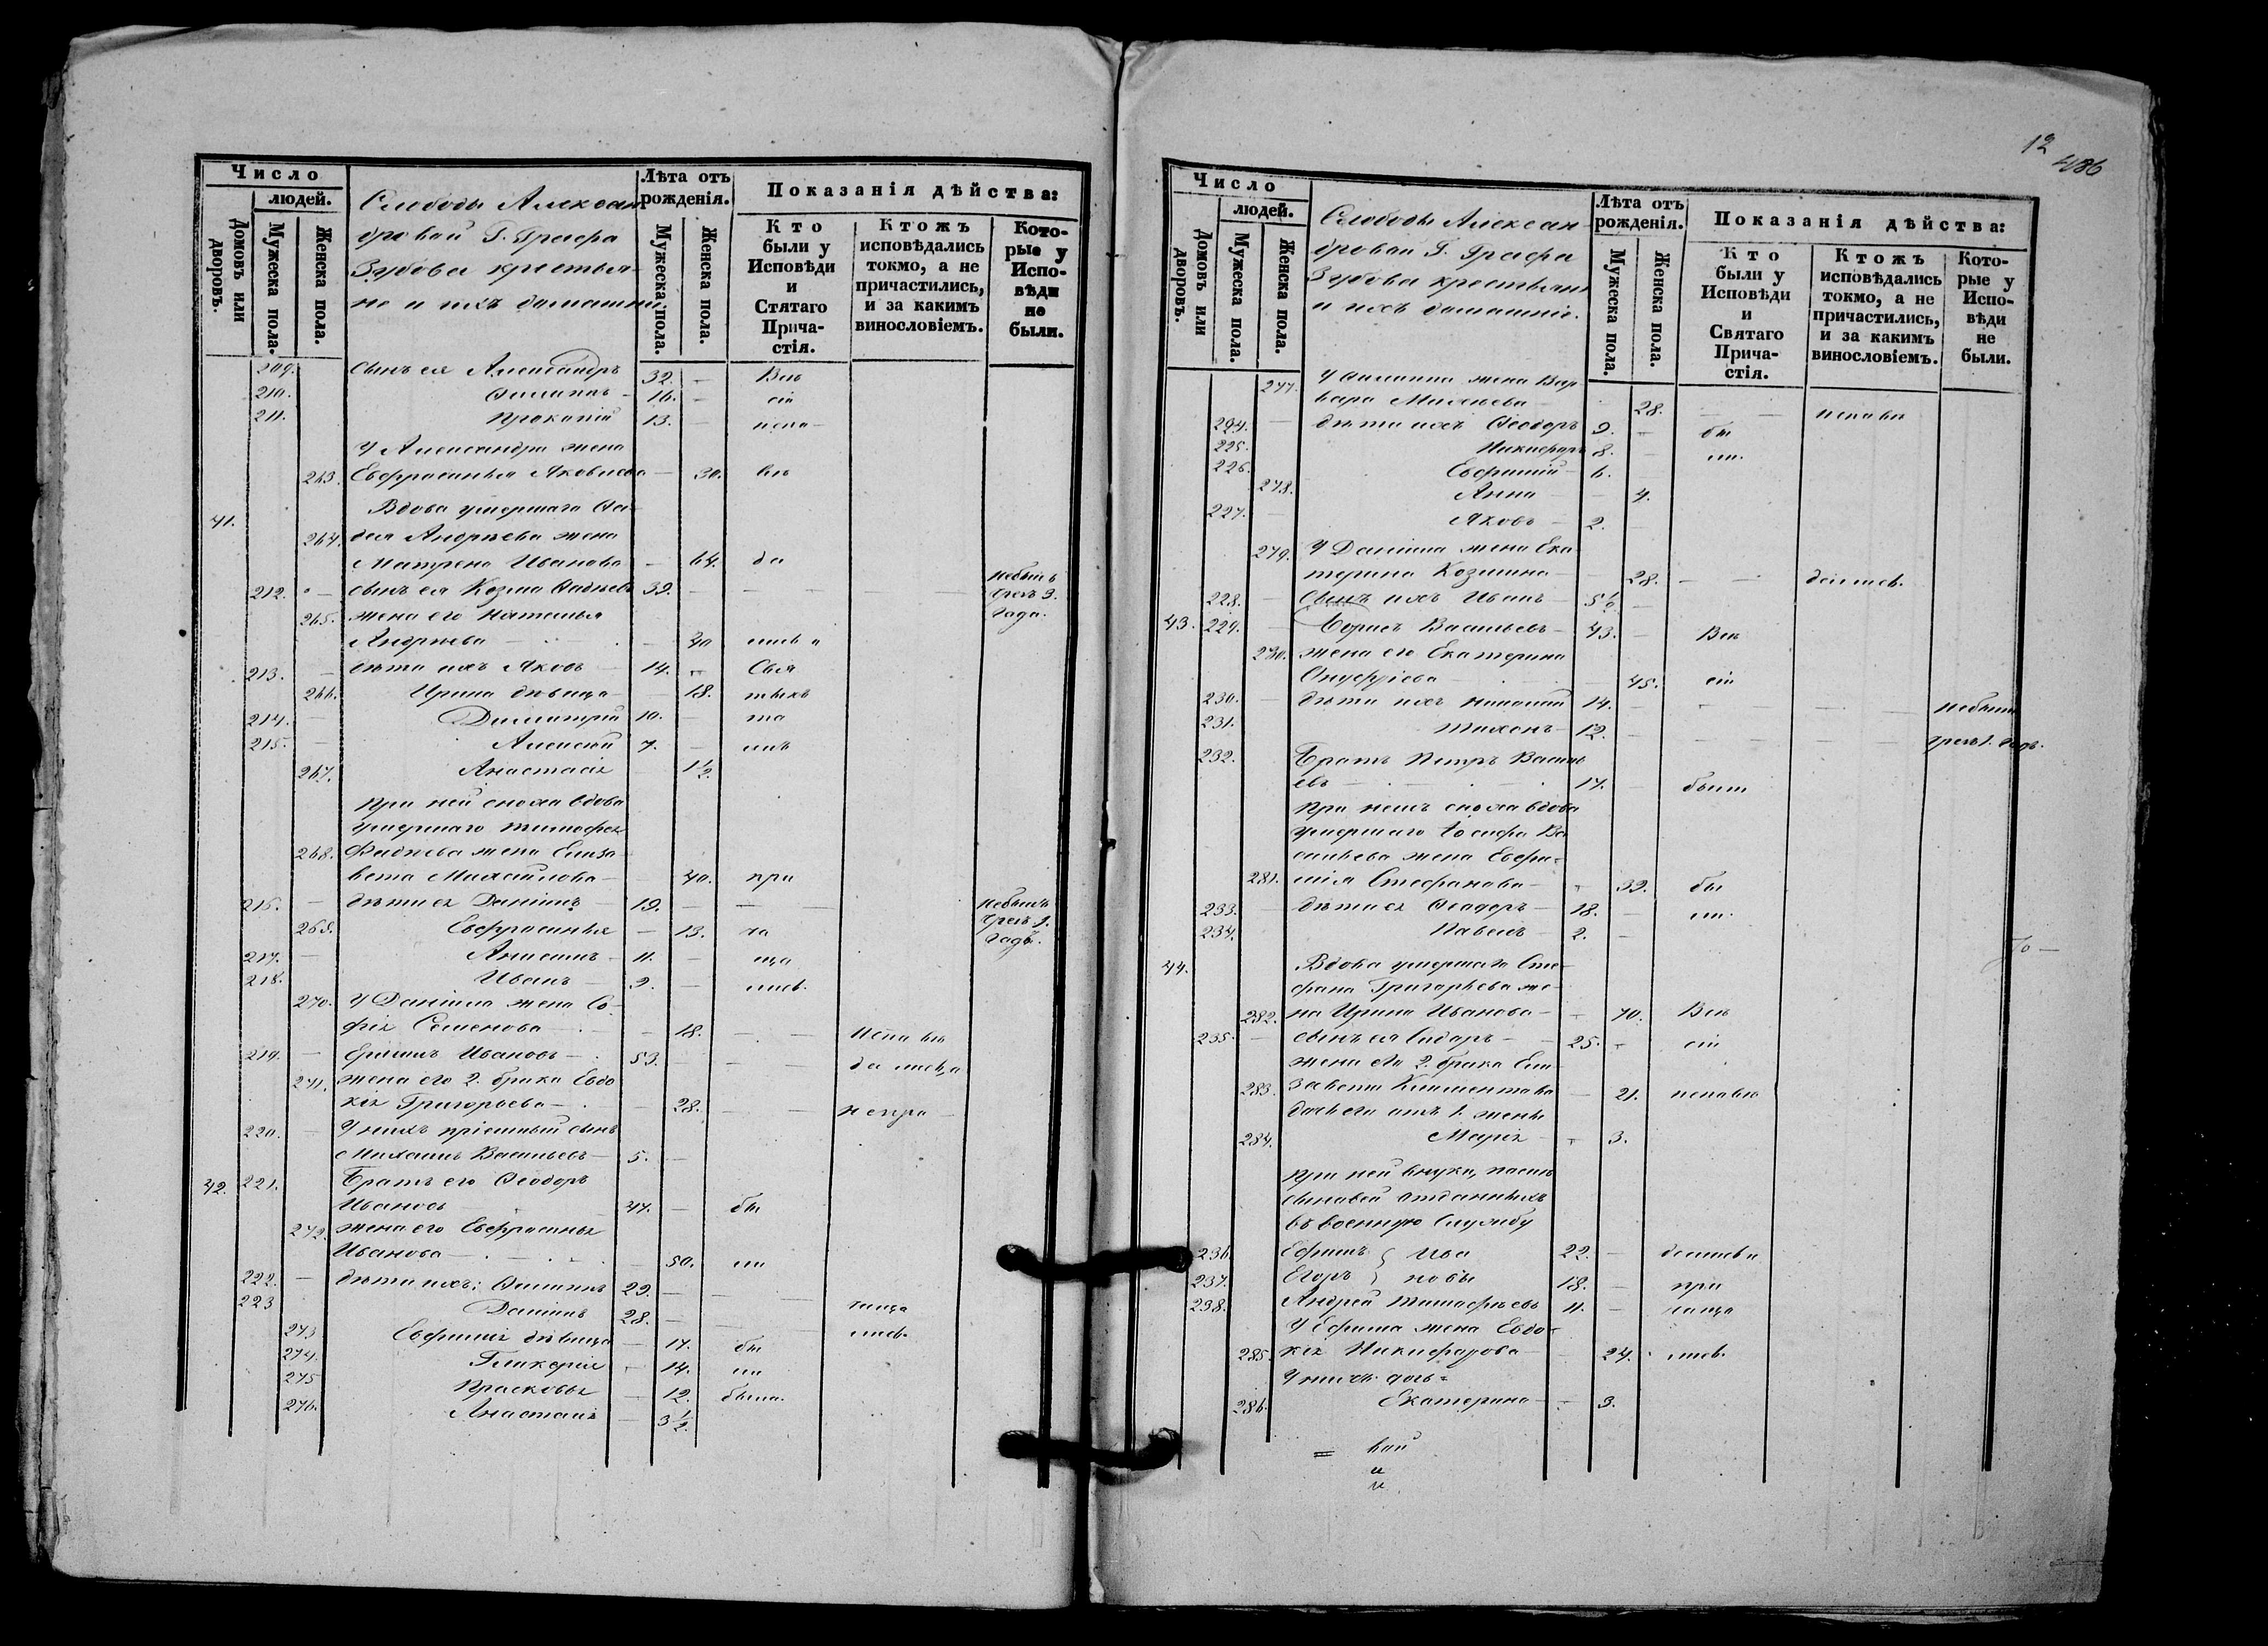 12
486
Число
людей.
Домовъ или дворовъ.
Мужеска пола.
Женска пола.
Слободы Алексан
дровой Г. Графа
Зубова крестья-
не и ихъ домашніе.
Лѣта отъ рожденія.
Мужеска пола.
Женска пола.
Показанія дѣйства:
Кто были у Исповѣди и Стятаго Прича- стія.
Ктожъ исповѣдались токмо, а не причастились, и за какимъ винословіемъ.
Кото- рые у Испо- вѣди не были.
209. сынъ ея Александръ 32. - Вси
210. Филиппъ - 16. - сіи
211. Прокопій 13. - испо-
У Александра жена
263. Евфросинья Яковлева - 30. вѣ
41. Вдова умершаго Фа-
264. дея Андреева жена
Матрена Иванова - 64. да
212. - сынъ ея Козма Фадѣевъ 39. - - - небылъ
чрезъ 3.
года.
265. жена его Наталья
Андреева - - 40 лись и
213. - дѣти ихъ Яковъ 14. - Свя
266. Ирина дѣвица - - 18. тыхъ
214. - Димитрій 10. - та
215. - Алексѣй 7. - инъ
267. Анастасія 1 1/2.
При ней сноха вдова
умершаго Тимофея
268. Фадѣева жена Елиза
вета Михайлова - 40. при
216. - дѣти ея Даніилъ 19. - - - небылъ
чрезъ 1.
годъ.
269. Евфросинья - 13. ча
217. - Анисимъ - 11. - ща
218. Иванъ 9. - лись.
270. У Даніила жена Со-
фія Семенова - - 18. - - испо вѣ
219. - Ефимъ Ивановъ - 53. - - дались, а
271. жена его 2. брака Евдо
кія Григорьева - - 28. - - не при -
220. - У нихъ пріемный сынъ
Михаилъ Васильевъ - 5. -
42. 221. Братъ его Ѳеодоръ
Ивановъ 47. - бы
272. жена его Евфросинья
Иванова - - 50. ли
222. - дѣти ихъ: Филиппъ 29. - - -
223 Даніилъ 28. - - чаща
273 Евфимія дѣвица - 17. бы лись.
274. Гликерія - 14. ли
275 Прасковья - 12. были.
276. Анастасія - 3 1/2.
Число
людей.
Домовъ или дворовъ.
Мужеска пола.
Женска пола.
Слободы Алексан-
дровой Г. Графа
Зубова крестьяне
и ихъ домашніе.
Лѣта отъ рожденія.
Мужеска пола.
Женска пола.
Показанія дѣйства:
Кто были у Исповѣди и Святаго Прича- стія.
Ктожъ исповѣдались токмо, а не причастились, и за какимъ винословіемъ.
Кото- рые у Испо- вѣди не были.
277. У Филиппа жена Вар
вара - 28. - - исповѣ
224. - дѣти ихъ Ѳеодоръ 9. - бы
225. Никифоръ 8. - ли.
226. Евфимій - 6. -
278. Анна - - 4.
227. - Яковъ - 2. -
279. У Даніила жена Ека
терина Козмина - 28. - - дались.
228. - Сынъ ихъ Иванъ - 5 1/2 -
43. 229. - Борисъ Васильевъ - 43. - Вси
230. жена его Екатерина
Онуфріева - - - 45. сіи
230. - дѣти ихъ Николай 14. - - - небыли
231. Тихонъ - 12. - - - чрезъ 1. годъ.
232. Братъ Петръ Василь
евъ - 17. - были
При немъ сноха вдова
умершаго Іосифа Ва
сильева жена Евфи-
281. мія Стефанова - - 39. бы
233. - дѣти ея Ѳеодоръ - 18. - ли.
234. Павелъ - 2. -
44. Вдова умершаго Сте-
фана Григорьева же-
282. на Ирина Иванова - - 70. Вси
235. - сынъ ея Сидоръ - - 25. - сіи
жена его 2. брака Ели
283. завета Климентова - 21. исповѣ
дочь его отъ 1. жены
284. Марія - - 3.
При ней внуки, послѣ
сыновей отданныхъ
въ военную Службу
236. Ефимъ } Ива 22. - дались и
237. Егоръ } новы 18. - при
238. Андрей Тимофѣевъ 11. - чаща
У Ефима жена Евдо-
285. кія Никифорова - 24. - лись.
У нихъ дочь =
286. Екатерина - - 3.
= кой
и
и